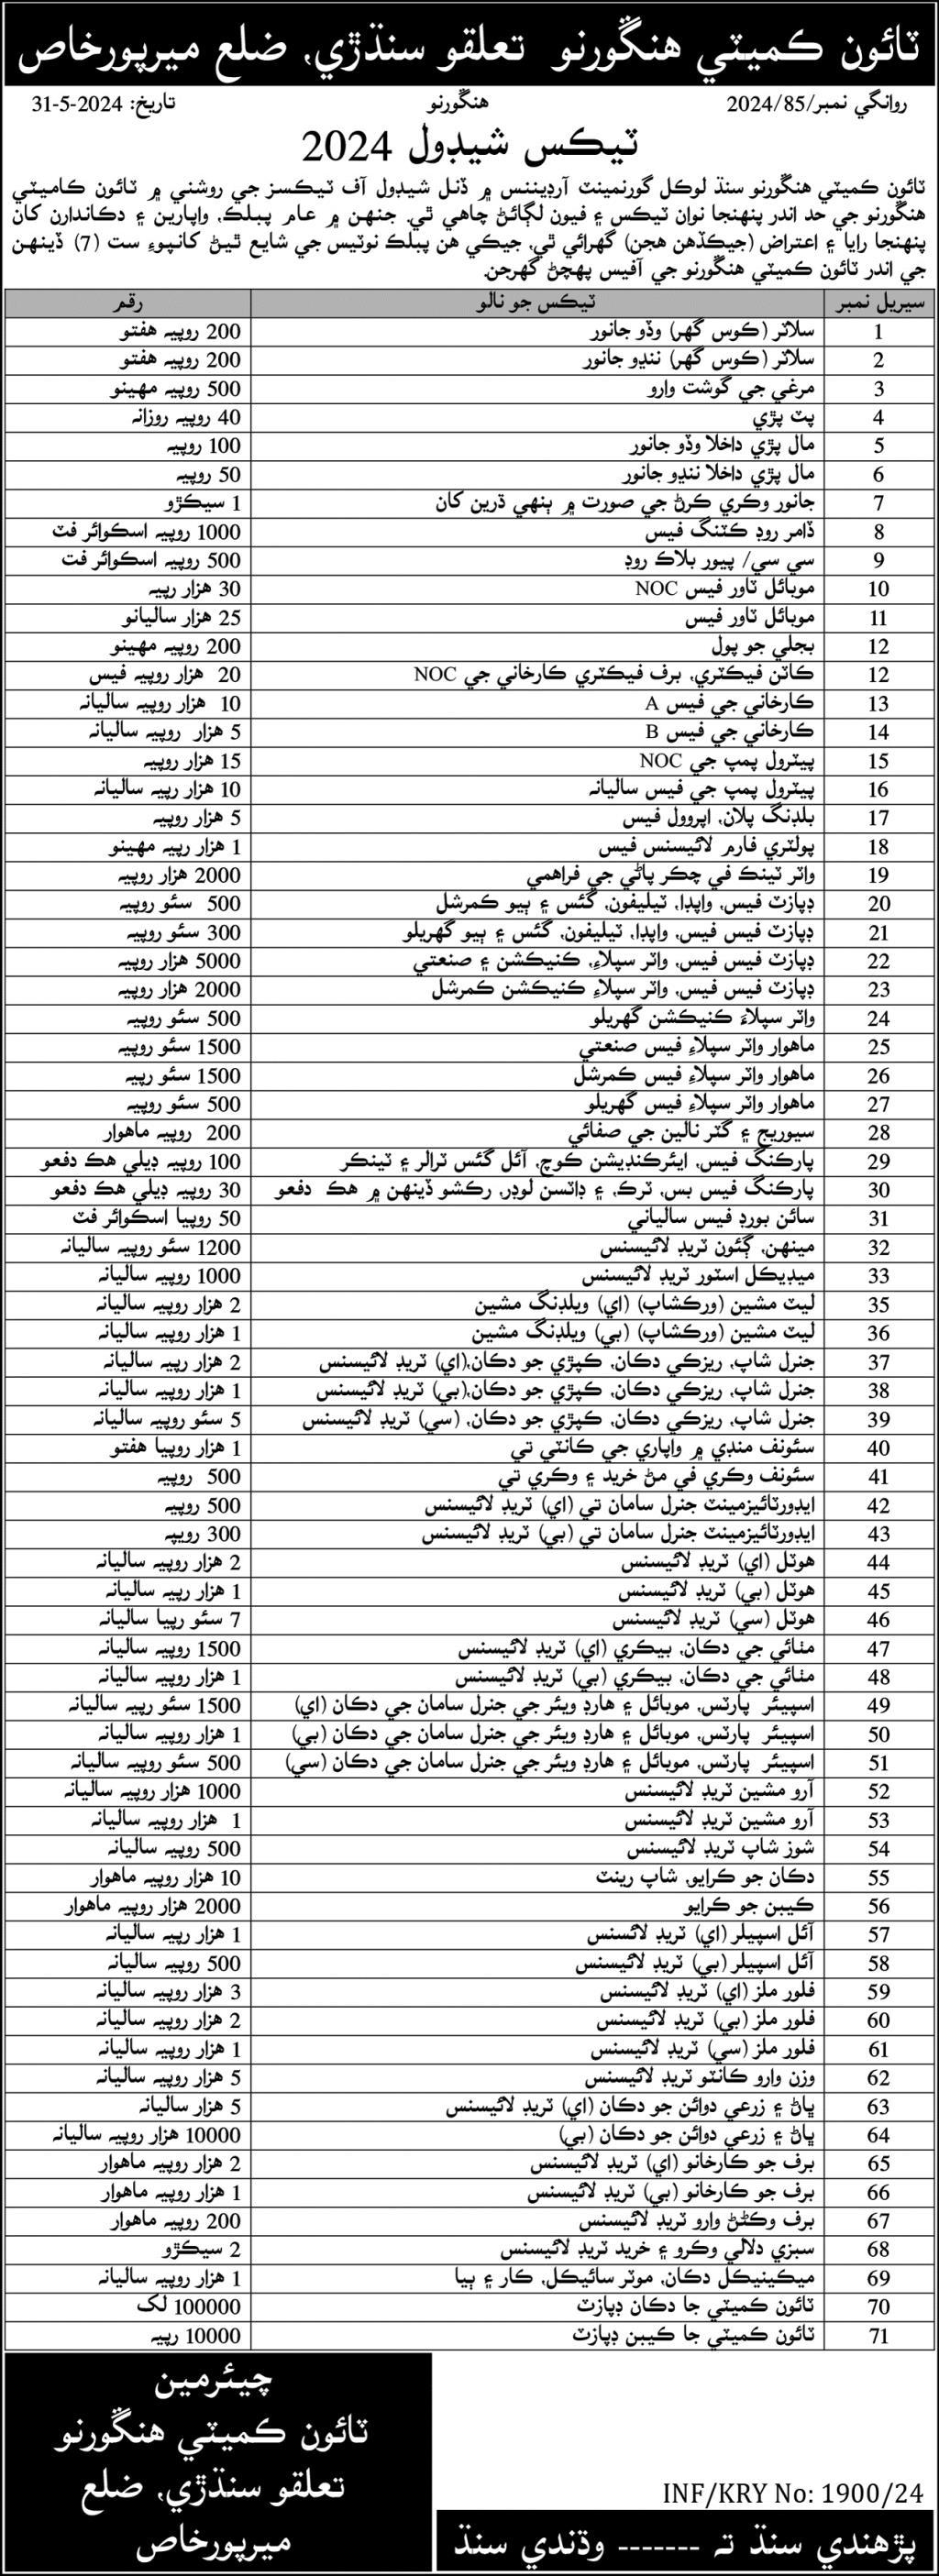 ٽائون ڪميٽي هنڱورنو تعلقو سنڌڙي، ضلع ميرپورخاص
روانگي نمبر/2024/85 هنڱورنو تاريخ: 31-5-2024
ٽيڪس شيڊول 2024
ٽائون ڪميٽي هنڱورنو سنڌ لوڪل گورنمينٽ آرڊيننس ۾ ڏنل شيڊول آف ٽيڪسز جي روشني ۾ ٽائون ڪاميٽي
هنڱورنو جي حد اندر پنهنجا نوان ٽيڪس ۽ فيون لڳائڻ چاهي ٿي. جنهن ۾ عام پبلڪ، واپارين ۽ دڪاندارن کان
پنهنجا رايا ۽ اعتراض (جيڪڏهن هجن) گهرائي ٿي، جيڪي هن پبلڪ نوٽيس جي شايع ٿيڻ کانپوءِ ست (7) ڏينهن
جي اندر ٽائون ڪميٽي هنڱورنو جي آفيس پهچڻ گهرجن.
سيريل نمبر ٽيڪس جو نالو رقم
1 سلاٽر (ڪوس گهر) وڏو جانور 200 روپيه هفتو
2 سلاٽر (ڪوس گهر) ننڍو جانور 200 روپيه هفتو
3 مرغي جي گوشت وارو 500 روپيه مهينو
4 پٽ پڙي 40 روپيه روزانه
5 مال پڙي داخلا وڏو جانور 100 روپيه
6 مال پڙي داخلا ننڍو جانور 50 روپيه
7 جانور وڪري ڪرڻ جي صورت ۾ ٻنهي ڌرين کان 1 سيڪڙو
8 ڏامر روڊ ڪٽنگ فيس 1000 روپيه اسڪوائر فٽ
9 سي سي/ پيور بلاڪ روڊ 500 روپيه اسڪوائر فٽ
10 موبائل ٽاور فيس NOC 30 هزار رپيه
11 موبائل ٽاور فيس 25 هزار ساليانو
12 بجلي جو پول 200 روپيه مهينو
12 ڪاٽن فيڪٽري، برف فيڪٽري ڪارخاني جي NOC 20 هزار روپيه فيس
13 ڪارخاني جي فيس A 10 هزار روپيه ساليانه
14 ڪارخاني جي فيس B 5 هزار روپيه ساليانه
15 پيٽرول پمپ جي NOC 15 هزار روپيه
16 پيٽرول پمپ جي فيس ساليانه 10 هزار رپيه ساليانه
17 بلڊنگ پلان، اپروول فيس 5 هزار روپيه
18 پولٽري فارم لائيسنس فيس 1 هزار رپيه مهينو
19 واٽر ٽينڪ في چڪر پاڻي جي فراهمي 2000 هزار روپيه
20 ڊپازٽ فيس، واپڊا، ٽيليفون، گئس ۽ ٻيو ڪمرشل 500 سئو روپيه
21 ڊپازٽ فيس فيس، واپڊا، ٽيليفون، گئس ۽ ٻيو گهريلو 300 سئو روپيه
22 ڊپازٽ فيس فيس، واٽر سپلاءِ، ڪنيڪشن ۽ صنعتي 5000 هزار روپيه
23 ڊپازٽ فيس فيس، واٽر سپلاءِ ڪنيڪشن ڪمرشل 2000 هزار روپيه
24 واٽر سپلاءَ ڪنيڪشن گهريلو 500 سئو روپيه
25 ماهوار واٽر سپلاءِ فيس صنعتي 1500 سئو روپيه
26 ماهوار واٽر سپلاءِ فيس ڪمرشل 1500 سئو رپيه
27 ماهوار واٽر سپلاءِ فيس گهريلو 500 سئو روپيه
28 سيوريج ۽ گٽر نالين جي صفائي 200 روپيه ماهوار
29 پارڪنگ فيس، ايئرڪنڊيشن ڪوچ، آئل گئس ٽرالر ۽ ٽينڪر 100 روپيه ڊيلي هڪ دفعو
30 پارڪنگ فيس بس، ٽرڪ، ۽ ڊاٽسن لوڊر، رڪشو ڏينهن ۾ هڪ دفعو 30 روپيه ڊيلي هڪ دفعو
31 سائن بورڊ فيس سالياني 50 روپيا اسڪوائر فٽ
32 مينهن، ڳئون ٽريڊ لائيسنس 1200 سئو روپيه ساليانه
33 ميڊيڪل اسٽور ٽريڊ لائيسنس 1000 روپيه ساليانه
35 ليٿ مشين (ورڪشاپ) (اي) ويلڊنگ مشين 2 هزار روپيه ساليانه
36 ليٿ مشين (ورڪشاپ) (بي) ويلڊنگ مشين 1 هزار روپيه ساليانه
37 جنرل شاپ، ريزڪي دڪان، ڪپڙي جو دڪان،(اي) ٽريڊ لائيسنس 2 هزار رپيه ساليانه
38 جنرل شاپ، ريزڪي دڪان، ڪپڙي جو دڪان،(بي) ٽريڊ لائيسنس 1 هزار روپيه ساليانه
39 جنرل شاپ، ريزڪي دڪان، ڪپڙي جو دڪان، (سي) ٽريڊ لائيسنس 5 سئو روپيه ساليانه
40 سئونف منڊي ۾ واپاري جي ڪانٽي تي 1 هزار روپيا هفتو
41 سئونف وڪري في مڻ خريد ۽ وڪري تي 500 روپيه
42 ايڊورٽائيزمينٽ جنرل سامان تي (اي) ٽريڊ لائيسنس 500 روپيه
43 ايڊورٽائيزمينٽ جنرل سامان تي (بي) ٽريڊ لائيسنس 300 روپيه
44 هوٽل (اي) ٽريڊ لائيسنس 2 هزار روپيه ساليانه
45 هوٽل (بي) ٽريڊ لائيسنس 1 هزار رپيه ساليانه
46 هوٽل (سي) ٽريڊ لائيسنس 7 سئو رپيا ساليانه
47 مٺائي جي دڪان، بيڪري (اي) ٽريڊ لائيسنس 1500 روپيه ساليانه
48 مٺائي جي دڪان، بيڪري (بي) ٽريڊ لائيسنس 1 هزار روپيه ساليانه
49 اسپيئر پارٽس، موبائل ۽ هارڊ ويئر جي جنرل سامان جي دڪان (اي) 1500 سئو رپيه ساليانه
50 اسپيئر پارٽس، موبائل ۽ هارڊ ويئر جي جنرل سامان جي دڪان (بي) 1 هزار روپيه ساليانه
51 اسپيئر پارٽس، موبائل ۽ هارڊ ويئر جي جنرل سامان جي دڪان (سي) 500 سئو روپيه ساليانه
52 آرو مشين ٽريڊ لائيسنس 1000 هزار روپيه ساليانه
53 آرو مشين ٽريڊ لائيسنس 1 هزار روپيه ساليانه
54 شوز شاپ ٽريڊ لائيسنس 500 روپيه ساليانه
55 دڪان جو ڪرايو، شاپ رينٽ 10 هزار روپيه ماهوار
56 ڪيبن جو ڪرايو 2000 هزار روپيه ماهوار
57 آئل اسپيلر (اي) ٽريڊ لائسنس 1 هزار رپيه ساليانه
58 آئل اسپيلر (بي) ٽريڊ لائيسنس 500 روپيه ساليانه
59 فلور ملز (اي) ٽريڊ لائيسنس 3 هزار روپيه ساليانه
60 فلور ملز (بي) ٽريڊ لائيسنس 2 هزار روپيه ساليانه
61 فلور ملز (سي) ٽريڊ لائيسنس 1 هزار روپيه ساليانه
62 وزن وارو ڪانٽو ٽريڊ لائيسنس 5 هزار روپيه ساليانه
63 ڀاڻ ۽ زرعي دوائن جو دڪان (اي) ٽريڊ لائيسنس 5 هزار ساليانه
64 ڀاڻ ۽ زرعي دوائن جو دڪان (بي) 10000 هزار روپيه ساليانه
65 برف جو ڪارخانو (اي) ٽريڊ لائيسنس 2 هزار روپيه ماهوار
66 برف جو ڪارخانو (بي) ٽريڊ لائيسنس 1 هزار روپيه ماهوار
67 برف وڪڻڻ وارو ٽريڊ لائيسنس 200 روپيه ماهوار
68 سبزي دلالي وڪرو ۽ خريد ٽريڊ لائيسنس 2 سيڪڙو
69 ميڪينيڪل دڪان، موٽر سائيڪل، ڪار ۽ ٻيا 1 هزار روپيه ساليانه
70 ٽائون ڪميٽي جا دڪان ڊپازٽ 100000 لک
71 ٽائون ڪميٽي جا ڪيبن ڊپازٽ 10000 رپيه
چيئرمين
ٽائون ڪميٽي هنڱورنو
تعلقو سنڌڙي، ضلع
ميرپورخاص
INF/KRY No: 1900/24
پڙهندي سنڌ ته ------- وڌندي سنڌ